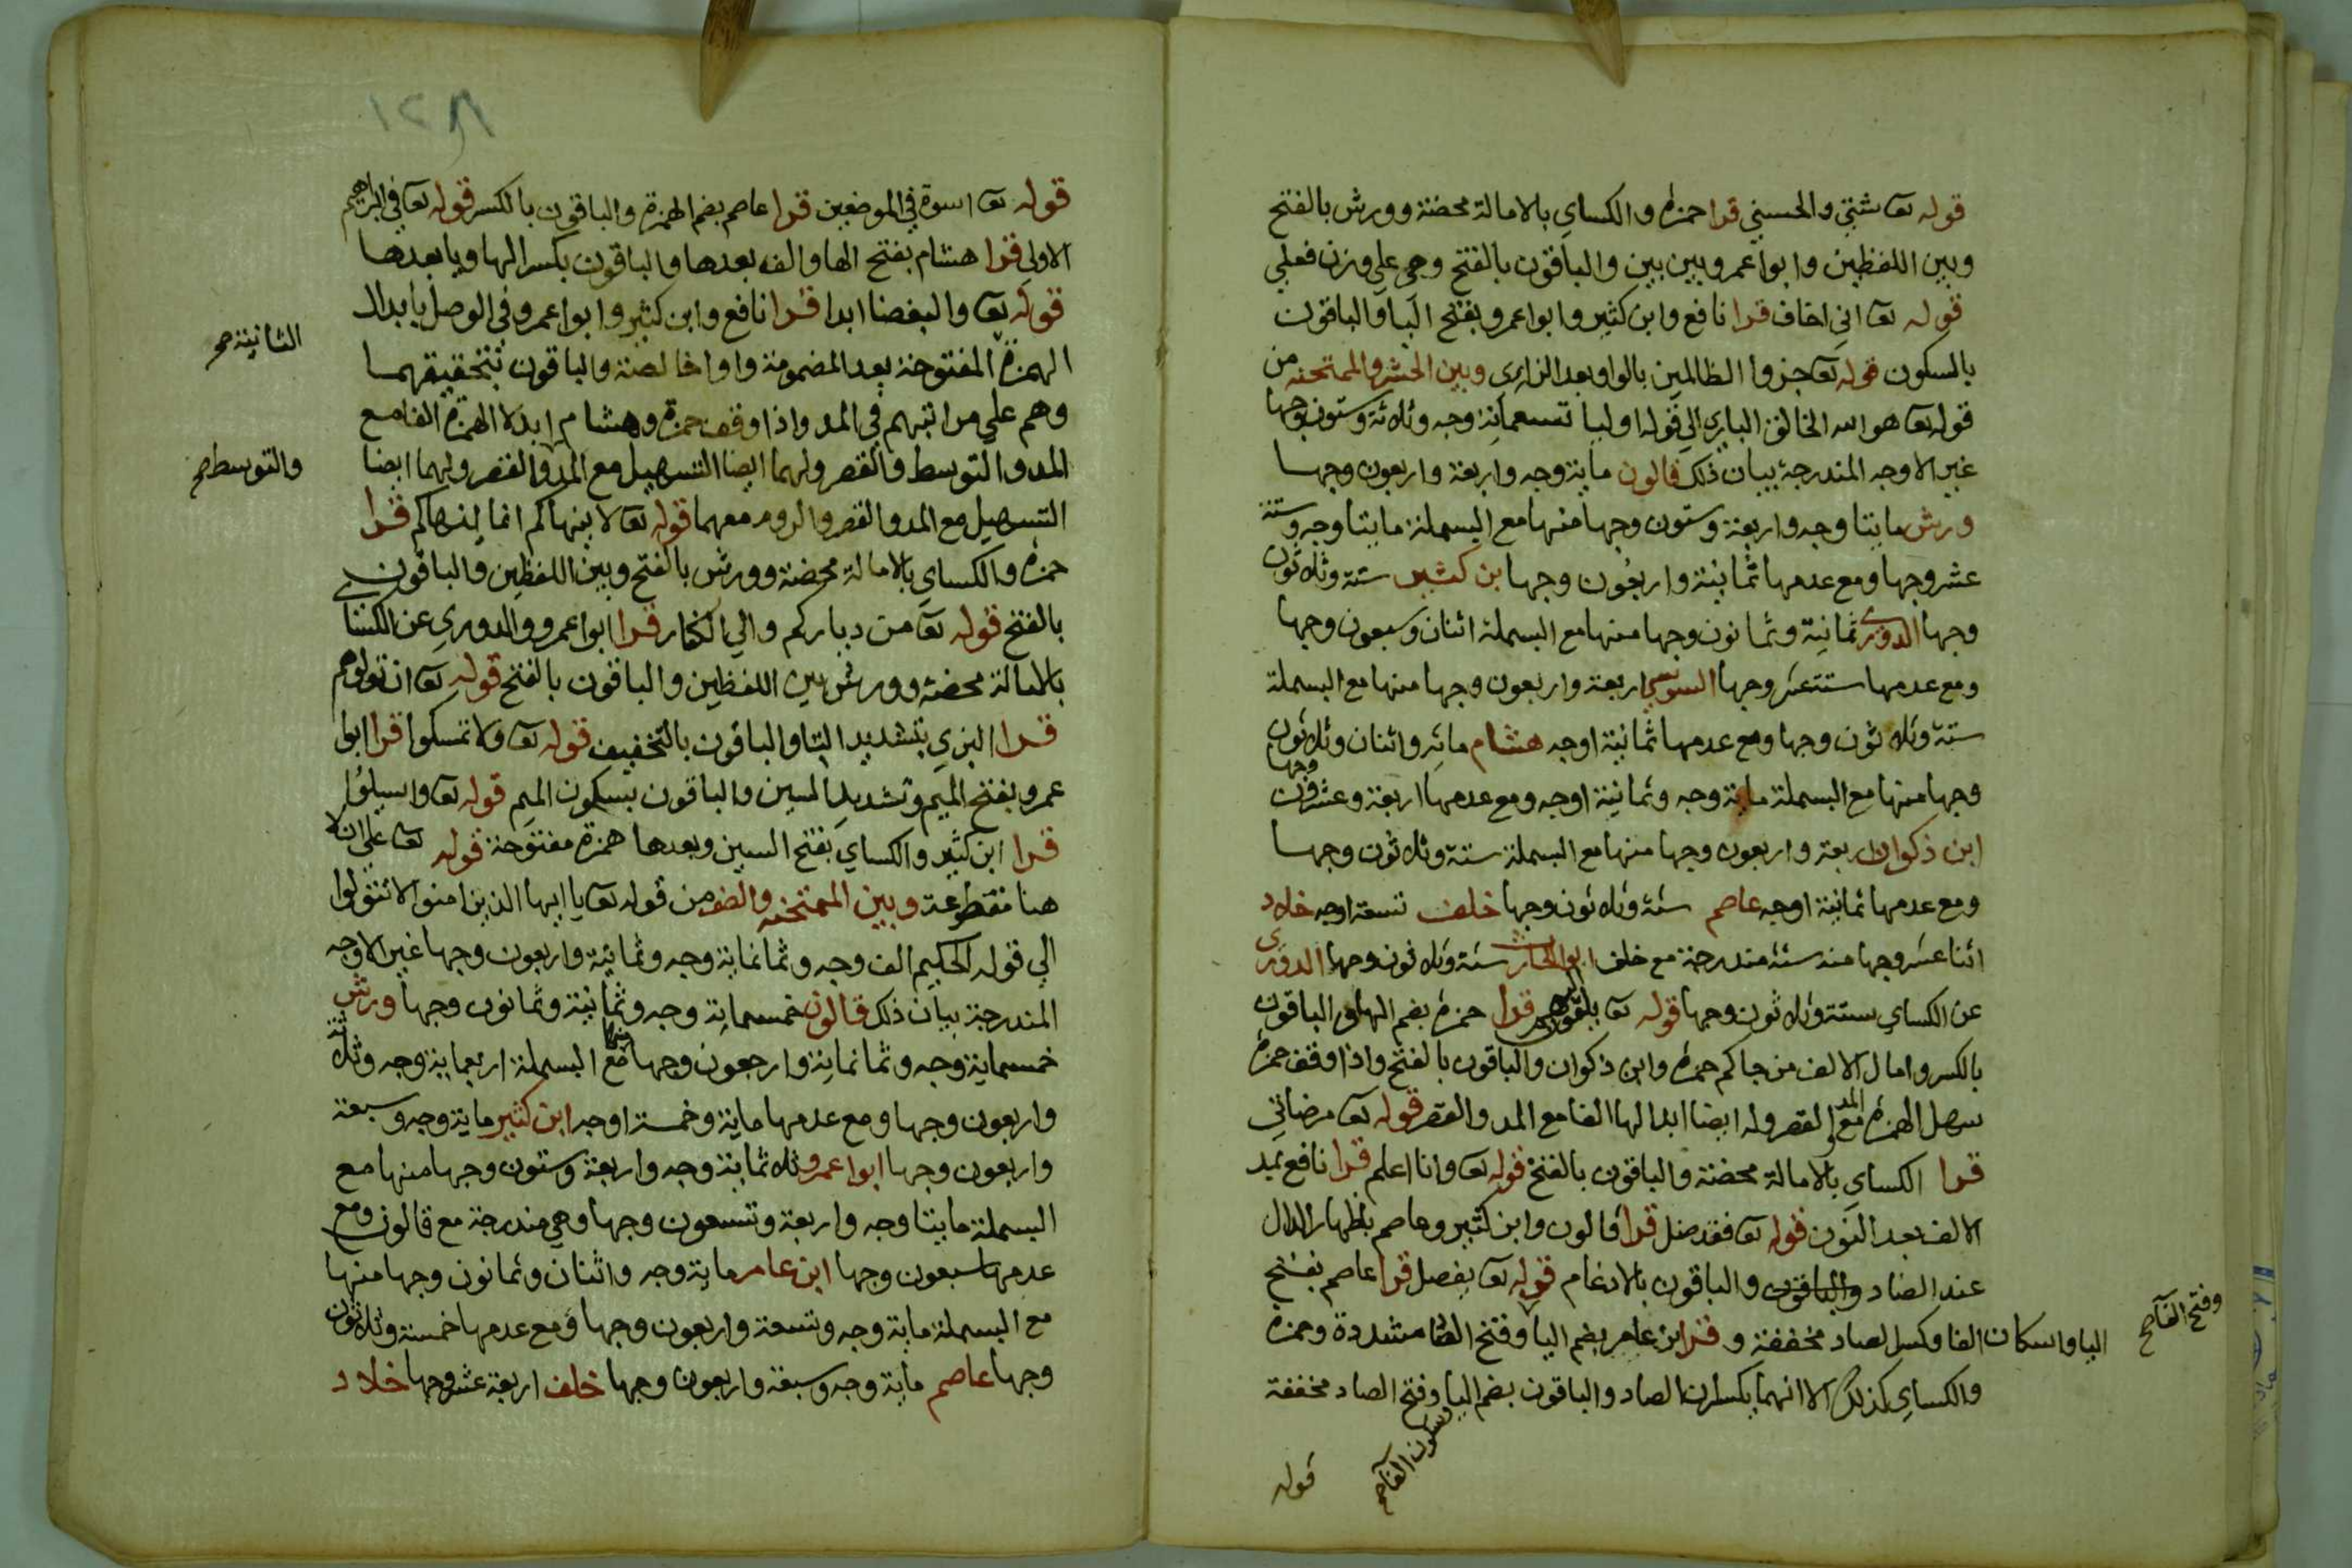 قوله تعا شتي والحسني قرا حمزة والكساي بالامالة محضة وورش بالفتح
وبين اللفظين وابوا عمرو بين بين والباقون بالفتح وهي علي وزن فعلي
قوله تعا اني اخاف قرا نافع وابن كثير وابوا عمرو بفتح اليا والباقون
بالسكون قوله تعا جزوا الظالمين بالواو بعد الزاي وبين الحشر والممتحنه من
قوله تعا هو الله الخالق الباري الي قوله اوليا تسعماية وجه وثلاثة وستون وجها
غير الاوجه المندرجة بيان ذلك قالون ماية وجه واربعة واربعون وجها
ورش مايتا وجه واربعة وستون وجها منها مع البسملة مايتا وجه وستة
عشر وجها ومع عدمها ثمانية واربعون وجها بن كثير ستة وثلاثون
وجها الدوري ثمانية وثمانون وجها منها مع البسملة اثنان وسبعون وجها
ومع عدمها ستتعشر وجها السوسي اربعة واربعون وجها منها مع البسملة
ستة وثلاثون وجها ومع عدمها ثمانية اوجه هشام مائه واثنان وثلاثون
وجها منها مع البسملة ماية وجه وثمانية اوجه ومع عدمها اربعة وعشرون وجها
ابن ذكوان اربعة واربعون وجها منها مع البسملة ستة وثلاثون وجها
ومع عدمها ثمانية اوجه عاصم ستة وثلاثون وجها خلف تسعة اوجه خلاد
اثنا عشر وجها منه ستة مندرجة مع خلف ابو الحارث ستة وثلاثون وجها الدوري
عن الكساي ستة وثلاثون وجها قوله تعا يلقون اليهم قرا حمزة بضم الها والباقون
بالكسر وامال الالف من جاكم حمزة وابن ذكوان والباقون بالفتح واذا وقف حمزة
سهل الهمزة مع المد والقصر وله ايضا ابدالها الفا مع المد والقصر قوله تعا مرضاتي
قرا الكساي بالامالة محضة والباقون بالفتح قوله تعا وانا اعلم قرا نافع بمد
الالف بعد النون قوله تعا فقد ضل قرا قالون وابن كثير وعاصم بظهار الدال
عند الضاد والباقون والباقون بالادغام قوله تعا يفصل قرا عاصم بفتح
اليا واسكان الفا وكسر الصاد مخففة و قرا ابن عامر بضم اليا وفتح الصاد مشددة وحمزة
وفتح الفا صح
والكساي كذلك الا انهما يكسران الصاد والباقون بضم اليا وفتح الصاد مخففة
وسكون الفا صح
قوله
١٢٨
قوله تعا اسوة في الموضعين قرا عاصم بضم الهمزة والباقون بالكسر قوله تعا في ابراهيم
الاولي قرا هشام بفتح الها والف بعدها والباقون بكسر الها ويا بعدها
قوله تعا والبغضا ابدا قرا نافع وابن كثير وابوا عمرو في الوصل بابدال
الثانية صح
الهمزة المفتوحة بعد المضمومة واوا خالصة والباقون بتحقيقهما
وهم علي مراتبهم في المد واذا وقف حمزة وهشام ابدلا الهمزة الفا مع
المد والتوسط والقصر ولهما ايضا التسهيل مع المد والقصر ولهما ايضا
والتوسط صح
التسهيل مع المد والقصر والروم معهما قوله تعا لا ينهاكم انما ينهاكم قرا
حمزة والكساي بالامالة محضة وورش بالفتح وبين اللفظين والباقون
بالفتح قوله تعا من دياركم والي الكفار قرا ابوا عمرو والدوري عن الكساي
بالامالة محضة وورش بين اللفظين والباقون بالفتح قوله تعا ان تولوهم
قرا البزي بتشديد التا والباقون بالتخفيف قوله تعا ولا تمسكوا قرا ابوا
عمرو بفتح الميم وتشديد السين والباقون بسكون الميم قوله تعا واسيلوا
قرا ابن كثير والكساي بفتح السين وبعدها همزة مفتوحة قوله تعا علي ان لا
هنا مقطوعة وبين الممتحنه والصف من قوله تعا يا ايها الذين امنوا لا تتولوا
الي قوله الحكيم الف وجه وثمانماية وجه وثمانية واربعون وجها غير الاوجه
المندرجة بيان ذلك قالون خمسماية وجه وثمانية وثمانون وجها ورش
خمسماية وجه وثمانماية واربعون وجها منها مع البسملة اربعماية وجه وثلاثة
واربعون وجها ومع عدمها ماية وخمسة اوجه ابن كثير ماية وجه وسبعة
واربعون وجها ابوا عمرو ثلاثماية وجه واربعة وستون وجها منها مع
البسملة مايتا وجه واربعة وتسعون وجها وهي مندرجة مع قالون ومع
عدمها سبعون وجها ابن عامر ماية وجه واثنان وثمانون وجها منها
مع البسملة ماية وجه وتسعة واربعون وجها ومع عدمها خمسة وثلاثون
وجها عاصم ماية وجه وسبعة واربعون وجها خلف اربعة عشر وجها خلاد